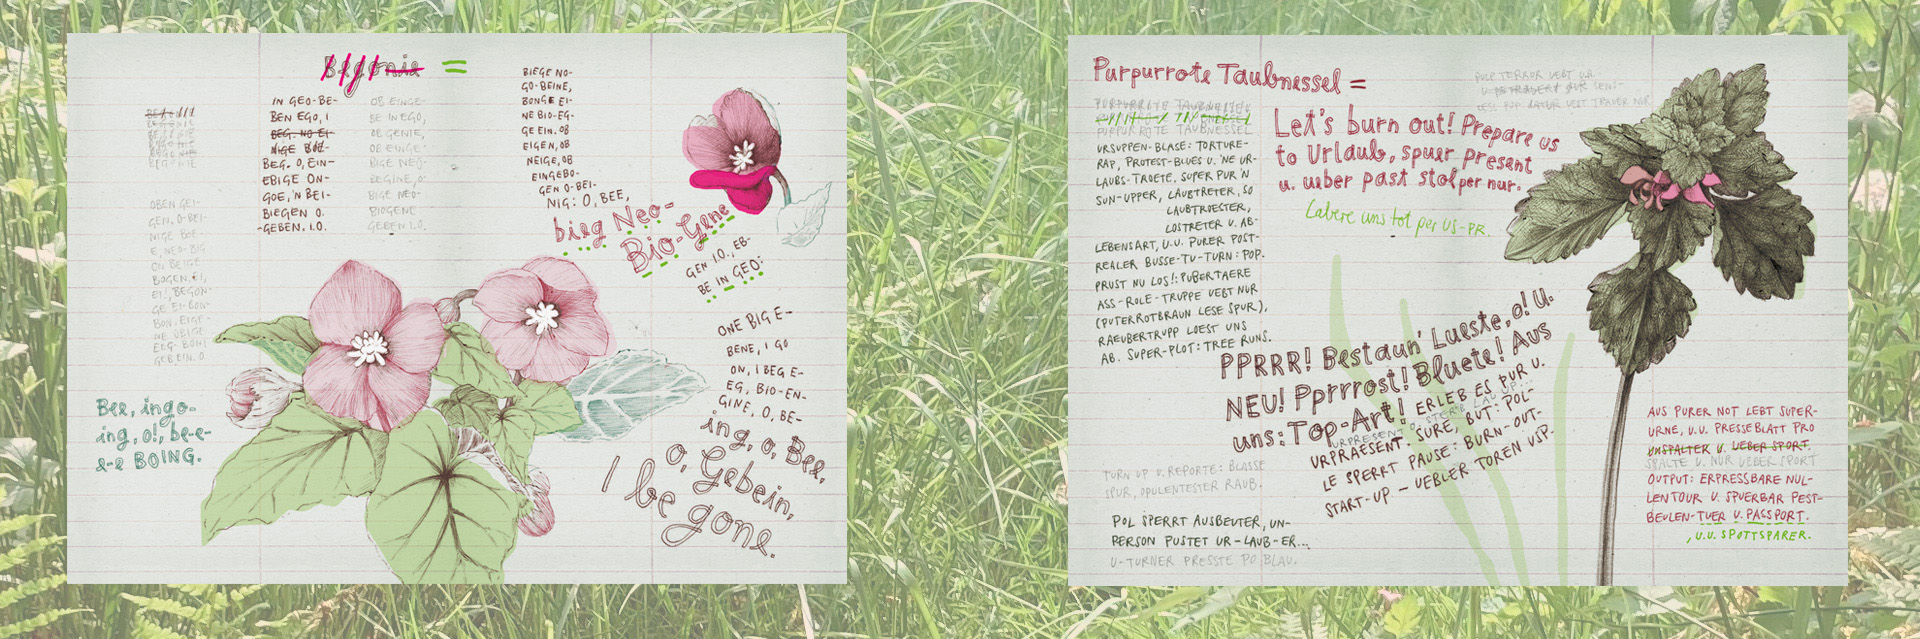 Begonie =
IN GEO-BE-
BEN EGO, I
BEG. NO EI-
NIGE BOE-
BEG. O, EIN-
EBIGE ON-
GOE, 'N BEI-
BIEGEN O.
-GEBEN. I.O.
OB EINGE-
BE IN EGO,
OB GENIE,
OB EINGE-
BIGE NEO-
BEGINE, O-
BIGE NEO-
BIOGENE
GEBEN. I.O.
OBEN GEI-
GEN, O-BEI-
NIGE BOE-
E, NEO-BIG
ON BEIGE
BOGEN, EI,
EI, BEGON-
GE EI-BON-
BON, EIGE-
NE OBIGE
GEBEIN. O
BIEGE NO-
GO-BEINE,
BONGE EI-
NE BIO-EG-
GE EIN. OB
EIGEN, OB
NEIGE, OB
EINGEBO-
GEN O-BEI-
NIG: O, BEE,
bieg Neo-
Bio-Gene
GEN I.O., EB-
BE IN GEO:
ONE BIG E-
BENE, I GO
ON, I BEG E-
EG, BIO-EN-
GINE, O, BE-
ing, o, Bee,
o, Gebein,
I be gone.
Bee, ingo-
ing, o!, be-e-
e-e BOING.
Purpurrote Taubnessel =
PURPURROTE TAUBNESSEL
PURPURROTE TAUBNESSEL
URSUPPEN-BLASE: TORTURE-
RAP, PROTEST-BLUES U. 'NE UR-
LAUBS-TROETE. SUPER PUR 'N
SUN-UPPER, LAUBTRETER, SO
LAUBTROESTER,
LOSTRETER U. AB-
LEBENSART, U.U. PURER POST-
REALER BUSSE-TU-TURN: POP.
PRUST NU LOS!: PUBERTAERE
ASS-ROLE-TRUPPE UEBT NUR
(PUTERROTBRAUN LESE SPUR),
RAEUBERTRUPP LOEST UNS
AB. SUPER-PLOT: TREE RUNS.
Let's burn out! Prepare us
to Urlaub, spuer present
u. ueber past stolper nur.
Labere uns tot per US-PR.
PPRRR! Bestaun' Lueste, o! U.
NEU! Pprrrost! Bluete! Aus
uns: Top-Art! ERLEB ES PUR U.
URPRAESENT. SURE, BUT: POL-
LE SPERRT PAUSE: BURN-OUT-
START-UP – UEBLER TOREN USP.
TURN UP U. REPORTE: BLASSE
SPUR, OPULENTESTER RAUB.
POL SPERRT AUSBEUTER, UN-
PERSON PUSTET UR-LAUB-ER...
U-TURNER PRESSTE PO BLAU.
AUS PURER NOT LEBT SUPER-
URNE, U.U. PRESSEBLATT PRO
UNSPALTER U. UEBER SPORT.
SPALTE U. NUR UEBER SPORT
OUTPUT: ERPRESSBARE NUL-
LENTOUR U. SPUERBAR PEST-
BEULEN-TUER U. PASSPORT.
, U.U. SPOTTSPARER.